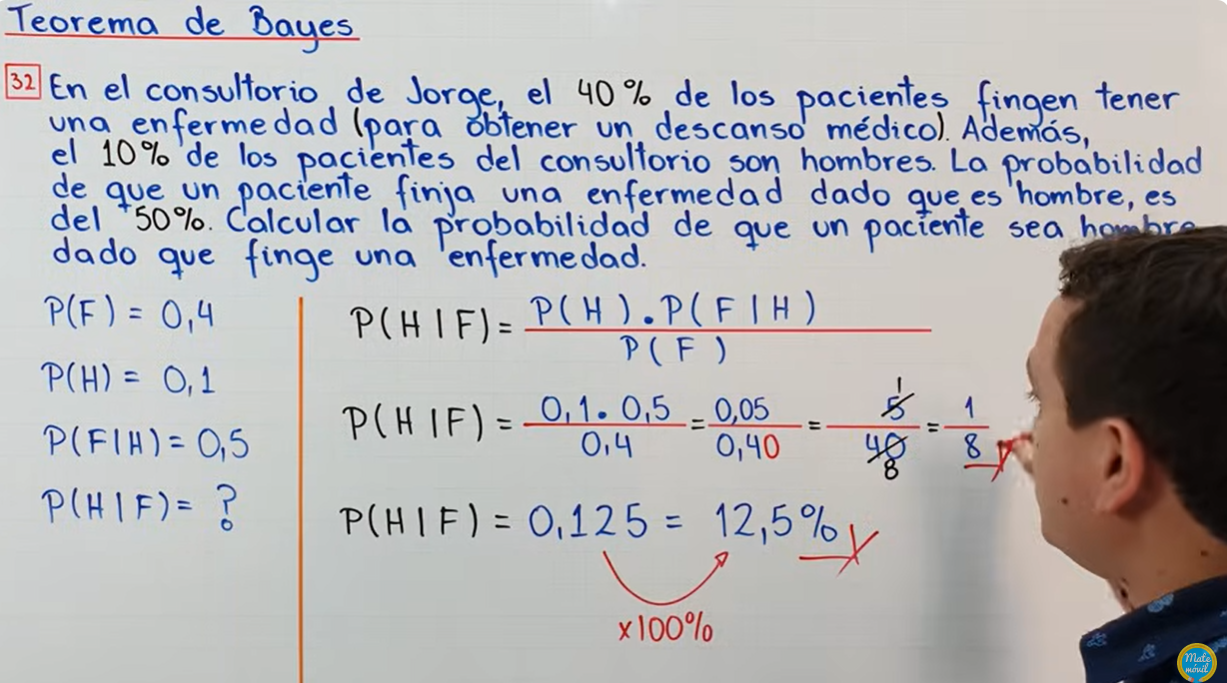 Teorema de Bayes
32 En el consultorio de Jorge, el 40% de los pacientes fingen tener
una enfermedad (para obtener un descanso médico). Además,
el 10% de los pacientes del consultorio son hombres. La probabilidad
de que un paciente finja una enfermedad dado que es hombre, es
del 50%. Calcular la probabilidad de que un paciente sea hombre
dado que finge una enfermedad.
P(F) = 0,4
P(H) = 0,1
P(F|H) = 0,5
P(H|F) = ?
P(H|F) = P(H).P(F|H) / P(F)
P(H|F) = 0,1.0,5 / 0,4 = 0,05 / 0,40 = 5 1 / 40 8 = 1 / 8
P(H|F) = 0,125 = 12,5%
x100%
Mate
móvil